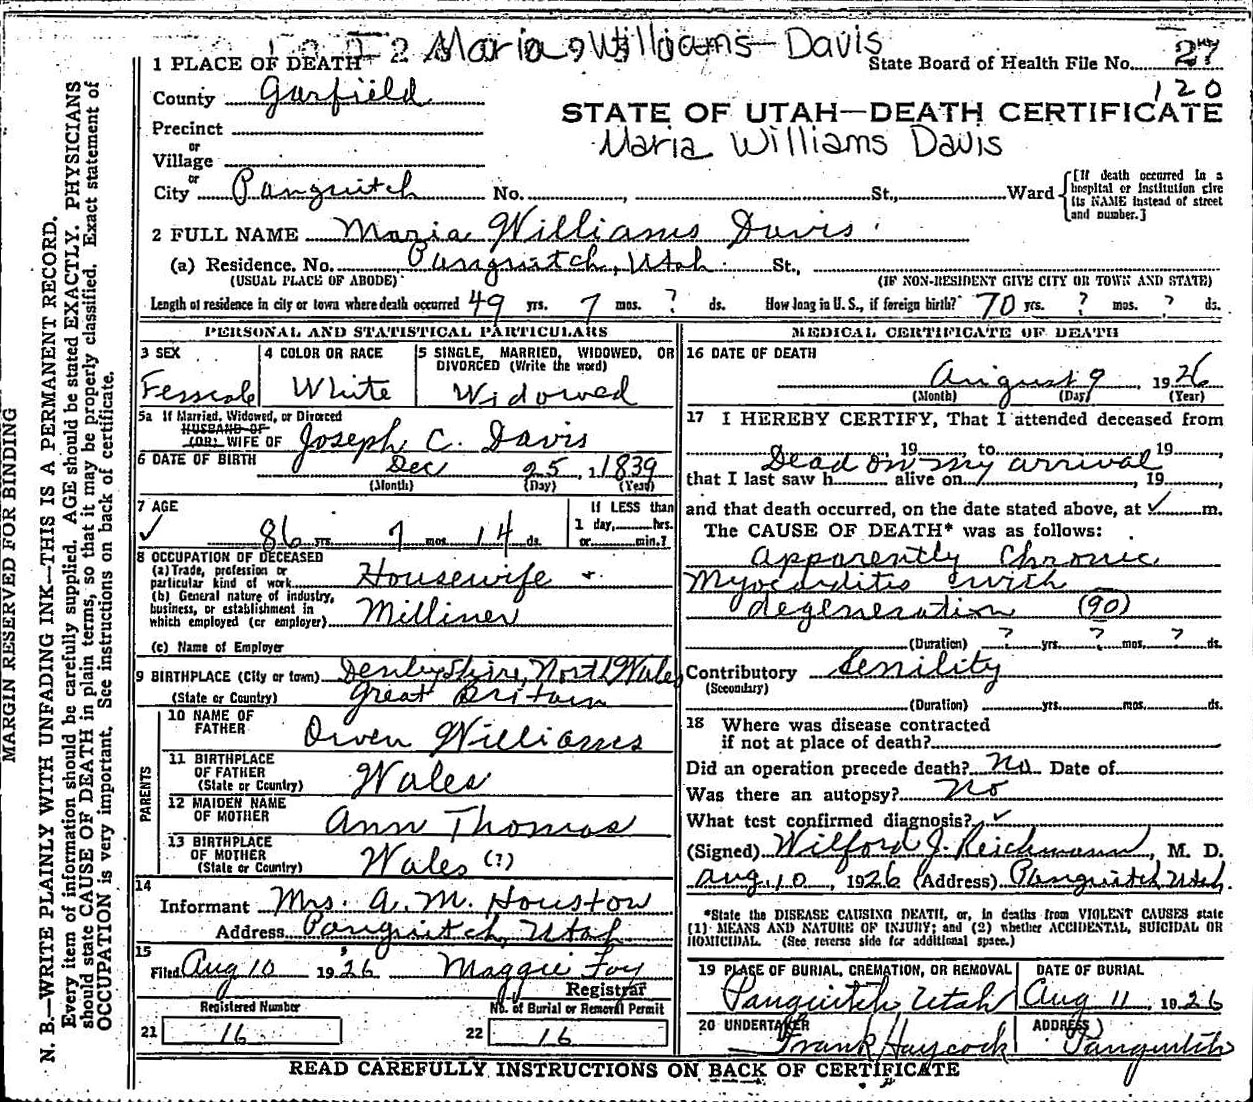 Maria Williams Davis
1 PLACE OF DEATH
State Board of Health File No. 27
120
County Garfield
STATE OF UTAH—DEATH CERTIFICATE
Precinct
Maria Williams Davis
or
Village
or
City Panguitch No. St., Ward
[If death occurred in a hospital or institution give its NAME instead of street and number.]
2 FULL NAME Maria Williams Davis
(a) Residence. No. Panguitch, Utah St.,
(USUAL PLACE OF ABODE) (IF NON-RESIDENT GIVE CITY OR TOWN AND STATE)
Length of residence in city or town where death occurred 49 yrs. 7 mos. ? ds. How long in U. S., if foreign birth? 70 yrs. ? mos. ? ds.
PERSONAL AND STATISTICAL PARTICULARS
3 SEX
Female
4 COLOR OR RACE
White
5 SINGLE, MARRIED, WIDOWED, OR DIVORCED (Write the word)
Widowed
5a If Married, Widowed, or Divorced
HUSBAND OF
(OR) WIFE OF Joseph C. Davis
6 DATE OF BIRTH Dec 25, 1839
(Month) (Day) (Year)
7 AGE
✓ 86 yrs. 7 mos. 14 ds.
If LESS than
1 day, hrs.
or min.?
8 OCCUPATION OF DECEASED
(a) Trade, profession or
particular kind of work Housewife
(b) General nature of industry,
business, or establishment in
which employed (or employer) Milliner
(c) Name of Employer
9 BIRTHPLACE (City or town) Denbyshire, North Wales
(State or Country) Great Britain
PARENTS
10 NAME OF FATHER Owen Williams
11 BIRTHPLACE OF FATHER Wales
(State or Country)
12 MAIDEN NAME OF MOTHER Ann Thomas
13 BIRTHPLACE OF MOTHER Wales (?)
(State or Country)
14
Informant Mrs. A. M. Houston
Address Panguitch, Utah
15
Filed Aug 10 1926 Maggie Foy
Registrar
Registered Number
21 16
No. of Burial or Removal Permit
22 16
MEDICAL CERTIFICATE OF DEATH
16 DATE OF DEATH
August 9, 1926
(Month) (Day) (Year)
17 I HEREBY CERTIFY, That I attended deceased from
19 to 19,
Dead on my arrival
that I last saw h alive on, 19,
and that death occurred, on the date stated above, at ✓ m.
The CAUSE OF DEATH* was as follows:
Apparently Chronic
Myocarditis with
degeneration (90)
(Duration) ? yrs. ? mos. ? ds.
Contributory Senility
(Secondary)
(Duration) yrs. mos. ds.
18 Where was disease contracted
if not at place of death?
Did an operation precede death? No Date of
Was there an autopsy? No
What test confirmed diagnosis? ✓
(Signed) Wilford J. Reichmann, M. D.
Aug. 10, 1926 (Address) Panguitch Utah.
*State the DISEASE CAUSING DEATH, or, in deaths from VIOLENT CAUSES state
(1) MEANS AND NATURE OF INJURY; and (2) whether ACCIDENTAL, SUICIDAL OR
HOMICIDAL. (See reverse side for additional space.)
19 PLACE OF BURIAL, CREMATION, OR REMOVAL
Panguitch Utah
DATE OF BURIAL
Aug 11 1926
20 UNDERTAKER
Frank Haycock
ADDRESS
Panguitch
READ CAREFULLY INSTRUCTIONS ON BACK OF CERTIFICATE
MARGIN RESERVED FOR BINDING
N. B.—WRITE PLAINLY WITH UNFADING INK—THIS IS A PERMANENT RECORD.
Every item of information should be carefully supplied. AGE should be stated EXACTLY. PHYSICIANS
should state CAUSE OF DEATH in plain terms, so that it may be properly classified. Exact statement of
OCCUPATION is very important. See instructions on back of certificate.